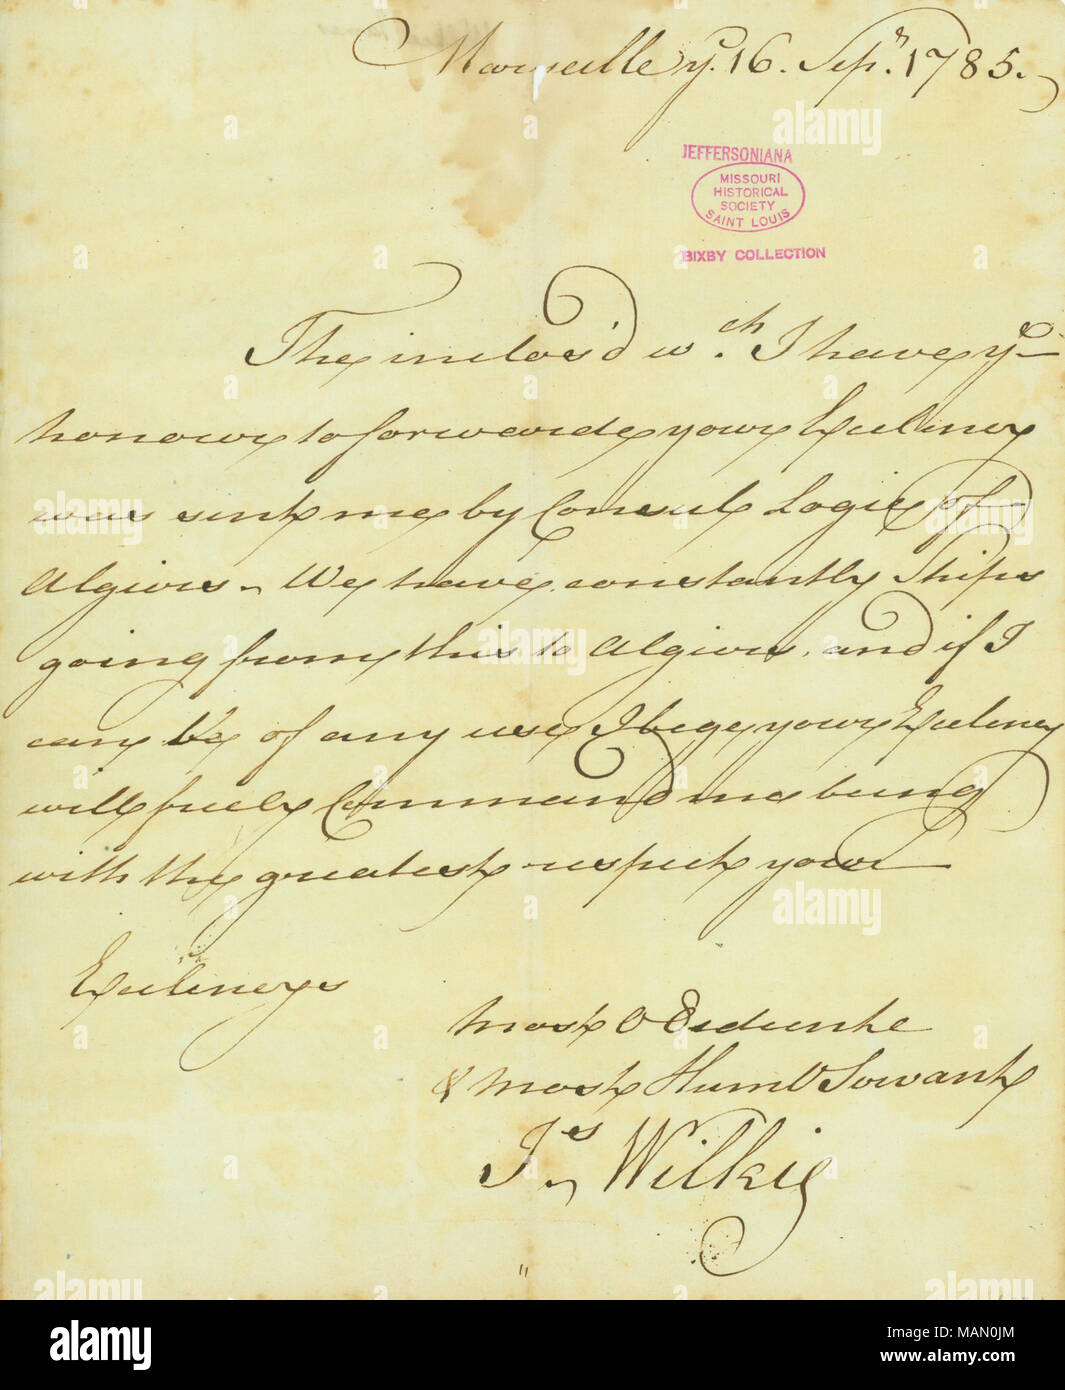 Marseille y.e 16. Sep.r 1785.
JEFFERSONIANA
MISSOURI
HISTORICAL
SOCIETY
SAINT LOUIS
BIXBY COLLECTION
The inclos'd w.ch I have y.e
honour to forwarde your Excelency
was sent me by Consul Logie of
Algiers. We have constantly Ships
going from this to Algiers, and if I
can be of any use I bege your Excelency
will freely Command me being
with the greatest respect your
Excelencys
most OBediente
& most Huml Servant
J.es Wilkie
alamy
Image ID: MAN0JM
www.alamy.com